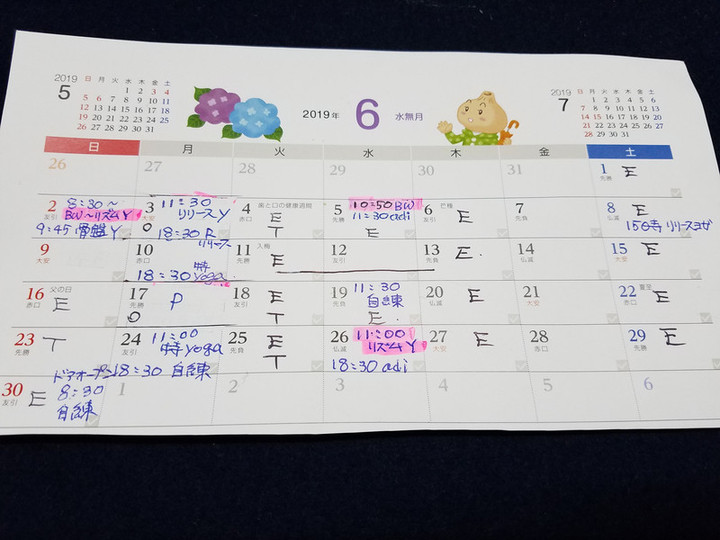 2019
5
日 月 火 水 木 金 土
1 2 3 4
5 6 7 8 9 10 11
12 13 14 15 16 17 18
19 20 21 22 23 24 25
26 27 28 29 30 31
2019年 6 水無月
2019
7
日 月 火 水 木 金 土
1 2 3 4 5 6
7 8 9 10 11 12 13
14 15 16 17 18 19 20
21 22 23 24 25 26 27
28 29 30 31
日 月 火 水 木 金 土
26 27 28 29 30 31 1 先勝 E
2 友引 8:30~
BW~リズムY
9:45 骨盤Y
3 先負 11:30
リリースY
18:30 R
リリース
4 赤口 歯と口の健康週間
E
T
5 先勝 10:50 BW
11:30 adi
E
6 友引 芒種 E
7 先負
8 仏滅 E
リリースヨガ
9 大安
10 赤口
18:30 特yoga
11 先勝 入梅 E
T
12 友引
13 先負 E.
14 仏滅
15 大安 E
16 赤口 父の日 E
17 先勝 P
18 友引 E
T
19 先負 11:30
自主練
E.
20 仏滅 E
21 大安
22 赤口 夏至 E
23 先勝 T
24 友引 11:00
特yoga
18:30 自主練
25 先負 E
T
26 仏滅 11:00
リズムY
18:30 adi
27 大安 E
28 赤口
29 先勝 E
30 友引 E
ドアオープン
8:30
自主練
1 2 3 4 5 6